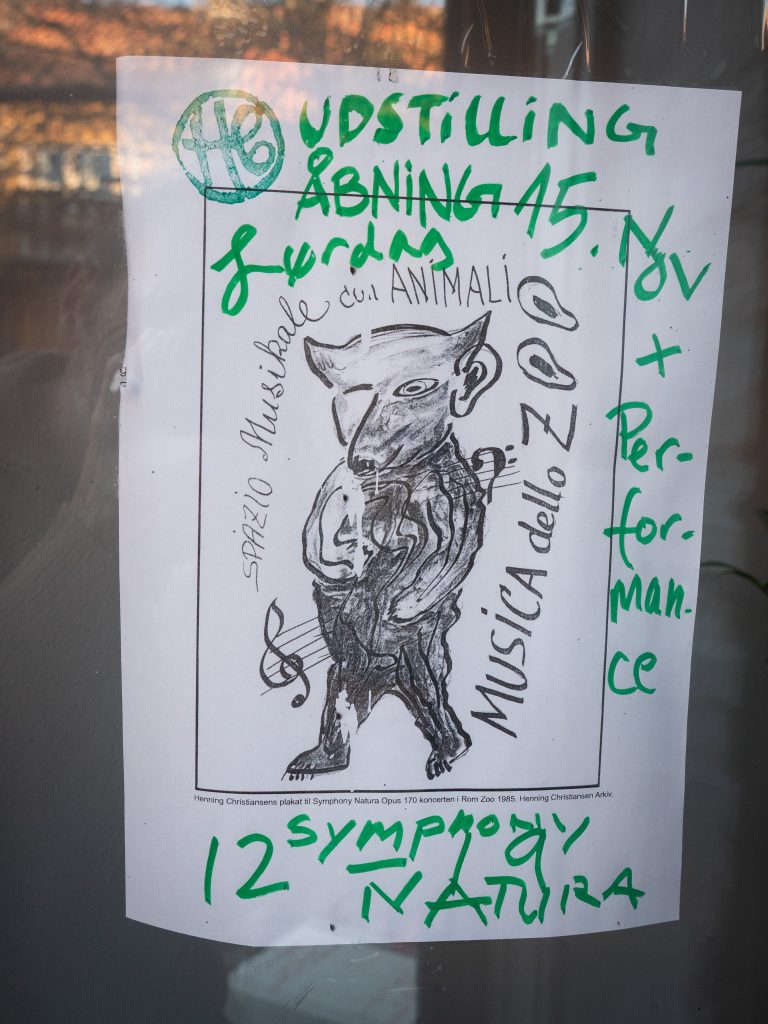 HC
UDSTILLING
ÅBNING 15. Nov
Lørdag
+
Per-
for-
man-
ce
SPAZIO Musikale con ANIMALI
MUSICA dello ZOO
Henning Christiansens plakat til Symphony Natura Opus 170 koncerten i Rom Zoo 1985. Henning Christiansen Arkiv.
12 SYMPHONY
NATURA